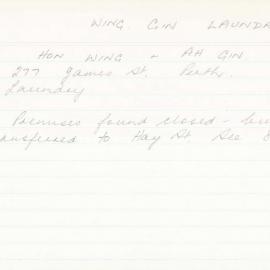 WING GIN LAUNDR
HON WING - AH GIN.
277 James St. Perth.
Laundry
Premises found closed - bus
ransferred to Hay St. See